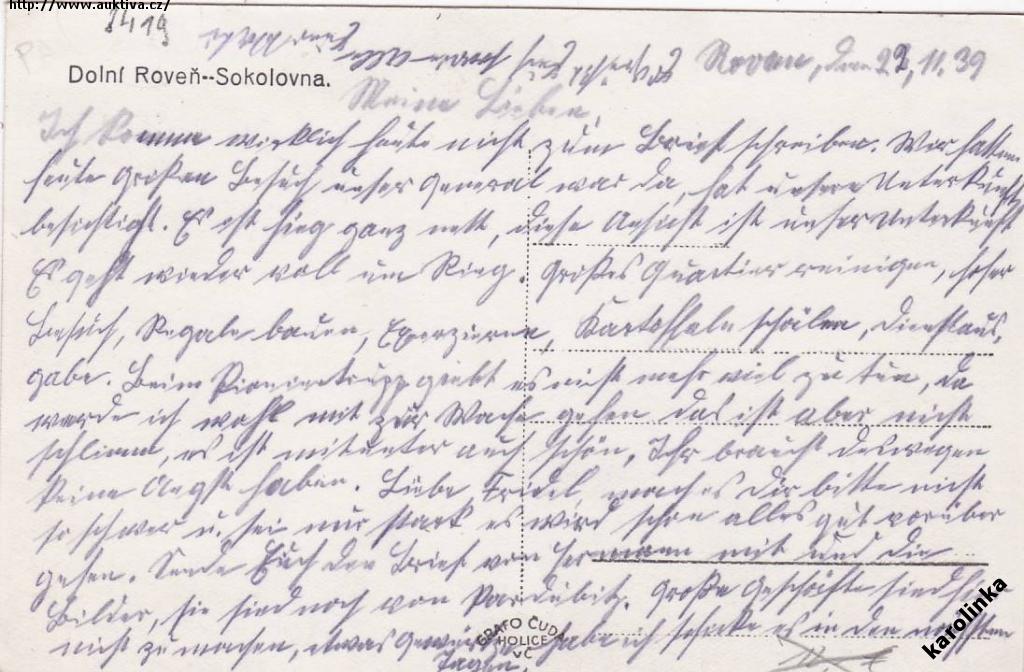 http://www.auktiva.cz/
3419
Dolní Roveň--Sokolovna.
Rovan, den 22, 11. 39
Meine Lieben,
Ich komme wirklich heute nicht zum Brief schreiben. Wir hatten
heute großen Besuch, unser General war da, hat unsere Unterkunft
besichtigt. Es ist hier ganz nett, diese Ansicht ist unser Unterkunft
Es geht wieder voll um Ring. Großes Quartier reinigen, hoher
Besuch, Regale bauen, Exerzieren, Kartoffeln schälen, Dienstaus,
gabe. Beim Pioniertrupp giebt es nicht mehr viel zu tun, da
werde ich wohl mit zur Wache gehen das ist aber nicht
schlimm, es ist mitunter auch schön, Ihr braucht deswegen
keine Angst haben. Liebe Fridel, mach es Dir bitte nicht
so schwer u. sei nur stark es wird schon alles gut vorüber
gehen. Sende Euch den Brief von Hermann mit und die
Bilder, sie sind noch von Pardubitz. Große Geschäfte sind hier
nicht zu machen, etwas habe ich schicke es in den nächsten
Tagen.
GRAFO ČUDA
HOLICE
V Č.
karolinka